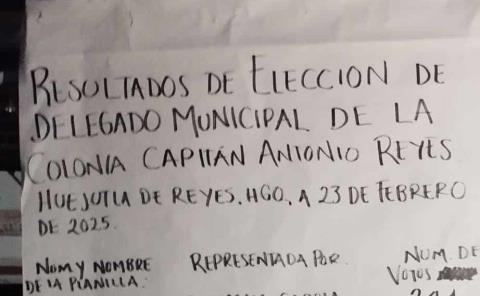 RESULTADOS DE ELECCION DE
DELEGADO MUNICIPAL DE LA
COLONIA CAPITÁN ANTONIO REYES
HUEJUTLA DE REYES, HGO, A 23 DE FEBRERO
DE 2025.
NOM Y NOMBRE REPRESENTADA POR. NUM. DE
DE LA PLANILLA. VOTOS